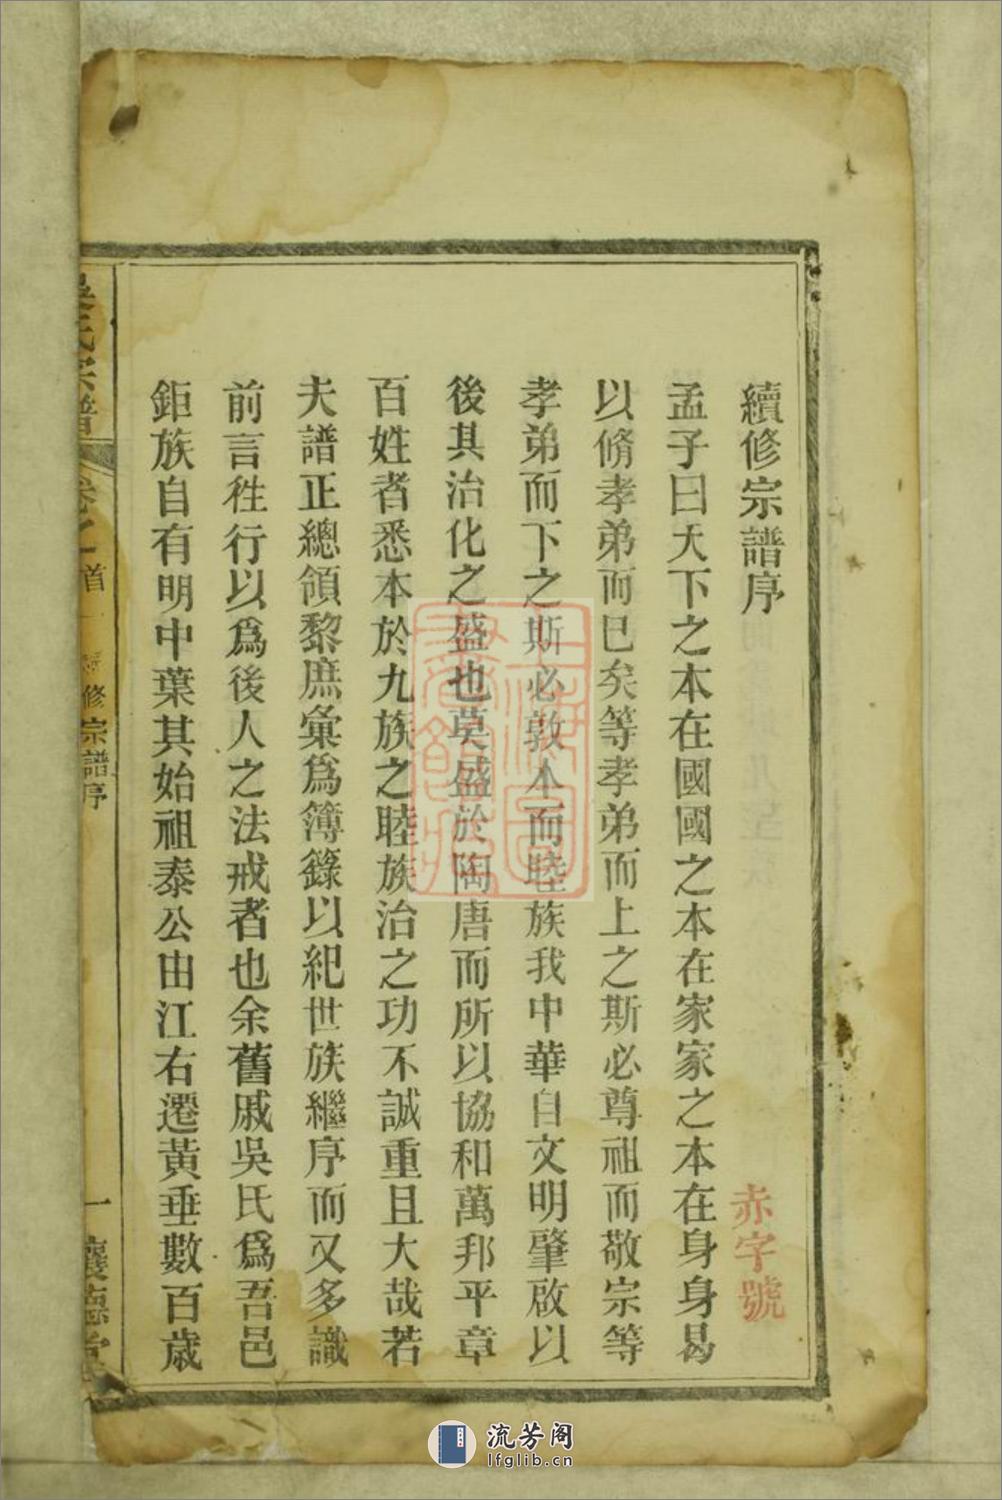 續修宗譜序
赤字號
孟子曰天下之本在國國之本在家家之本在身身曷
以脩孝弟而已矣等孝弟而上之斯必尊祖而敬宗等
孝弟而下之斯必敦本而睦族我中華自文明肇啟以
後其治化之盛也莫盛於陶唐而所以協和萬邦平章
百姓者悉本於九族之睦族治之功不誠重且大哉若
夫譜正總領黎庶彙爲簿籙以紀世族繼序而又多識
前言徃行以爲後人之法戒者也余舊戚吳氏爲吾邑
鉅族自有明中葉其始祖泰公由江右遷黃垂數百歲
吳氏宗譜
卷之首一
續修宗譜序
一
讓德堂
上海圖書館藏
流芳阁
lfglib.cn